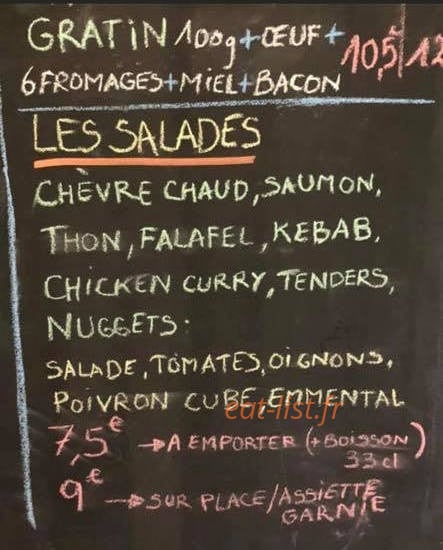 GRATIN 100g+ŒUF+
10,5|12
6 FROMAGES+MIEL+BACON
LES SALADES
CHÈVRE CHAUD, SAUMON,
THON, FALAFEL, KEBAB,
CHICKEN CURRY, TENDERS,
NUGGETS:
SALADE, TOMATES, OIGNONS,
POIVRON CUBE EMMENTAL
eat-list.fr
7,5€ → A EMPORTER (+BOISSON 33cl)
9€ → SUR PLACE/ASSIETTE GARNIE